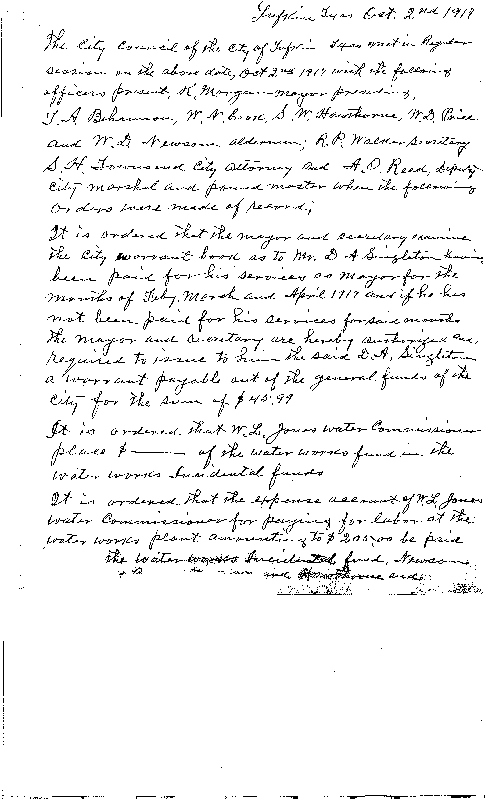 Lufkin Texas Oct. 2nd 1917
The City Council of the City of Lufkin Texas met in Regular
session on the above date, Oct 2nd 1917 with the following
officers present, K. Morgan mayor presiding,
J. A. Bohannon, W. N. S. W. Hawthorne, W. D. Price
and W. D. Newsome aldermen; R. P. Walker Secretary
S. H. Townsend City attorney and A. O. Reed, Deputy
City marshal and pound master when the following
orders were made of record;
It is ordered that the mayor and secretary examine
the City warrant book as to Mr. D A Singleton having
been paid for his services as mayor for the
months of Feby, March and April 1917 and if he has
not been paid for his services for said months
the mayor and secretary are hereby authorized and
required to issue to him the said D. A. Singleton
a warrant payable out of the general funds of the
City for the sum of $45.99
It is ordered that W. L. Jones water Commissioner
place $ ——— of the water works fund in the
water works Incidental funds
It is ordered that the expense account of W. L. Jones
water Commissioner for paying for labor at the
water works plant amounting to $ be paid
the water works Incidental fund, Newsome
and Hawthorne and